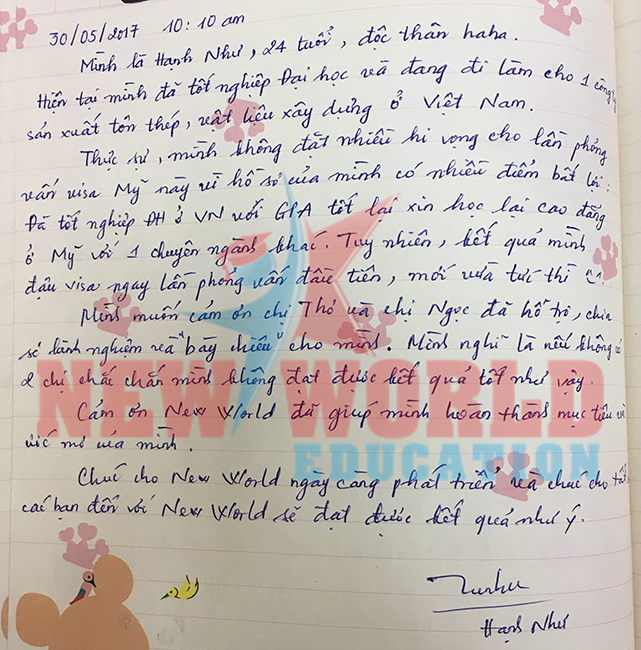 30/05/2017 10:10 am
Mình là Hạnh Như, 24 tuổi, độc thân haha.
Hiện tại mình đã tốt nghiệp Đại học và đang đi làm cho 1 công ty
sản xuất tôn thép, vật liệu xây dựng ở Việt Nam.
Thực sự, mình không đặt nhiều hi vọng cho lần phỏng
vấn visa Mỹ này vì hồ sơ của mình có nhiều điểm bất lợi:
Đã tốt nghiệp ĐH ở VN với GPA tốt lại xin học lại cao đẳng
ở Mỹ với 1 chuyên ngành khác. Tuy nhiên, kết quả mình
đậu visa ngay lần phỏng vấn đầu tiên, mới vừa tức thì
Mình muốn cảm ơn chị Thơ và chị Ngọc đã hỗ trợ, chia
sẻ kinh nghiệm và "bày chiêu" cho mình. Mình nghĩ là nếu không có
2 chị chắc chắn mình không đạt được kết quả tốt như vậy.
Cảm ơn New World đã giúp mình hoàn thành mục tiêu và
ước mơ của mình.
NEW WORLD
EDUCATION
Chúc cho New World ngày càng phát triển và chúc cho tất
các bạn đến với New World sẽ đạt được kết quả như ý.
Hạnh Như